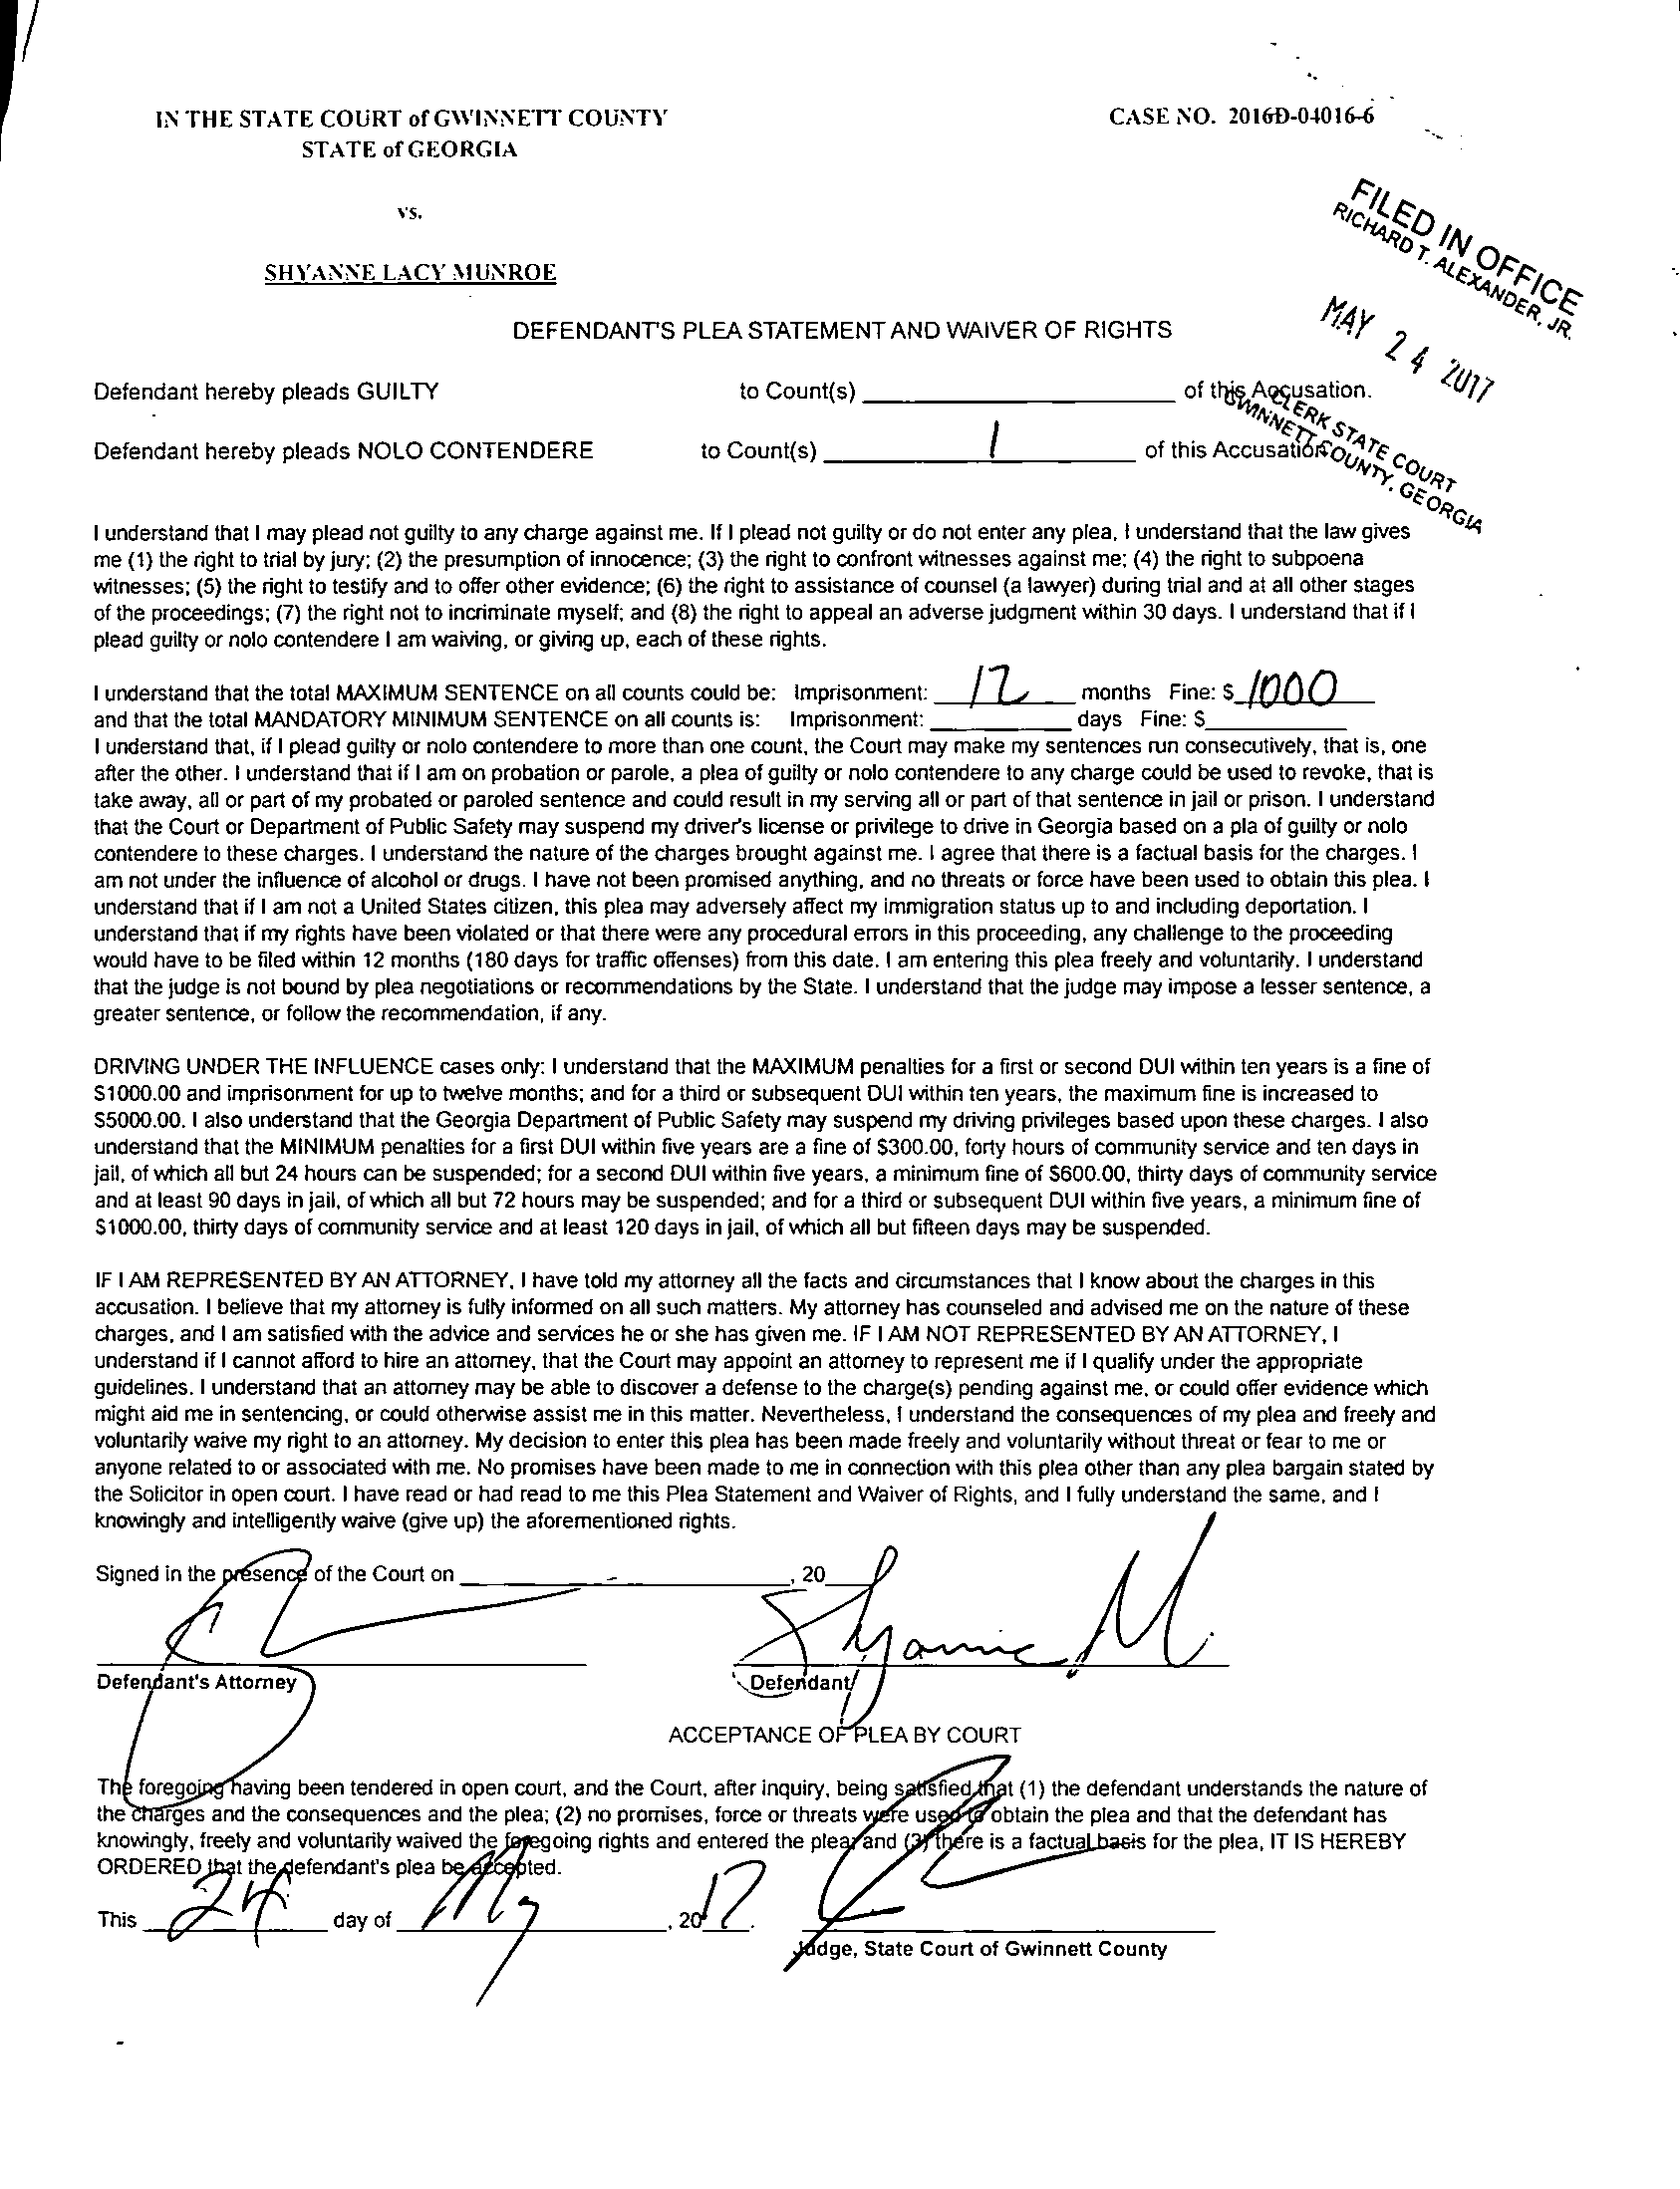 IN THE STATE COURT of GWINNETT COUNTY
CASE NO. 2016D-04016-6
STATE of GEORGIA
vs.
SHYANNE LACY MUNROE
FILED IN OFFICE
RICHARD T. ALEXANDER, JR.
MAY 24 2017
CLERK STATE COURT
GWINNETT COUNTY, GEORGIA
DEFENDANT'S PLEA STATEMENT AND WAIVER OF RIGHTS
Defendant hereby pleads GUILTY to Count(s) of this Accusation.
Defendant hereby pleads NOLO CONTENDERE to Count(s) 1 of this Accusation
I understand that I may plead not guilty to any charge against me. If I plead not guilty or do not enter any plea, I understand that the law gives
me (1) the right to trial by jury; (2) the presumption of innocence; (3) the right to confront witnesses against me; (4) the right to subpoena
witnesses; (5) the right to testify and to offer other evidence; (6) the right to assistance of counsel (a lawyer) during trial and at all other stages
of the proceedings; (7) the right not to incriminate myself; and (8) the right to appeal an adverse judgment within 30 days. I understand that if I
plead guilty or nolo contendere I am waiving, or giving up, each of these rights.
I understand that the total MAXIMUM SENTENCE on all counts could be: Imprisonment: 12 months Fine: $ 1000
and that the total MANDATORY MINIMUM SENTENCE on all counts is: Imprisonment: days Fine: $
I understand that, if I plead guilty or nolo contendere to more than one count, the Court may make my sentences run consecutively, that is, one
after the other. I understand that if I am on probation or parole, a plea of guilty or nolo contendere to any charge could be used to revoke, that is
take away, all or part of my probated or paroled sentence and could result in my serving all or part of that sentence in jail or prison. I understand
that the Court or Department of Public Safety may suspend my driver's license or privilege to drive in Georgia based on a pla of guilty or nolo
contendere to these charges. I understand the nature of the charges brought against me. I agree that there is a factual basis for the charges. I
am not under the influence of alcohol or drugs. I have not been promised anything, and no threats or force have been used to obtain this plea. I
understand that if I am not a United States citizen, this plea may adversely affect my immigration status up to and including deportation. I
understand that if my rights have been violated or that there were any procedural errors in this proceeding, any challenge to the proceeding
would have to be filed within 12 months (180 days for traffic offenses) from this date. I am entering this plea freely and voluntarily. I understand
that the judge is not bound by plea negotiations or recommendations by the State. I understand that the judge may impose a lesser sentence, a
greater sentence, or follow the recommendation, if any.
DRIVING UNDER THE INFLUENCE cases only: I understand that the MAXIMUM penalties for a first or second DUI within ten years is a fine of
$1000.00 and imprisonment for up to twelve months; and for a third or subsequent DUI within ten years, the maximum fine is increased to
$5000.00. I also understand that the Georgia Department of Public Safety may suspend my driving privileges based upon these charges. I also
understand that the MINIMUM penalties for a first DUI within five years are a fine of $300.00, forty hours of community service and ten days in
jail, of which all but 24 hours can be suspended; for a second DUI within five years, a minimum fine of $600.00, thirty days of community service
and at least 90 days in jail, of which all but 72 hours may be suspended; and for a third or subsequent DUI within five years, a minimum fine of
$1000.00, thirty days of community service and at least 120 days in jail, of which all but fifteen days may be suspended.
IF I AM REPRESENTED BY AN ATTORNEY, I have told my attorney all the facts and circumstances that I know about the charges in this
accusation. I believe that my attorney is fully informed on all such matters. My attorney has counseled and advised me on the nature of these
charges, and I am satisfied with the advice and services he or she has given me. IF I AM NOT REPRESENTED BY AN ATTORNEY, I
understand if I cannot afford to hire an attorney, that the Court may appoint an attorney to represent me if I qualify under the appropriate
guidelines. I understand that an attorney may be able to discover a defense to the charge(s) pending against me, or could offer evidence which
might aid me in sentencing, or could otherwise assist me in this matter. Nevertheless, I understand the consequences of my plea and freely and
voluntarily waive my right to an attorney. My decision to enter this plea has been made freely and voluntarily without threat or fear to me or
anyone related to or associated with me. No promises have been made to me in connection with this plea other than any plea bargain stated by
the Solicitor in open court. I have read or had read to me this Plea Statement and Waiver of Rights, and I fully understand the same, and I
knowingly and intelligently waive (give up) the aforementioned rights.
Signed in the presence of the Court on , 20
Shyanne M.
Defendant's Attorney Defendant
ACCEPTANCE OF PLEA BY COURT
The foregoing having been tendered in open court, and the Court, after inquiry, being satisfied that (1) the defendant understands the nature of
the charges and the consequences and the plea; (2) no promises, force or threats were used to obtain the plea and that the defendant has
knowingly, freely and voluntarily waived the foregoing rights and entered the plea; and (3) there is a factual basis for the plea, IT IS HEREBY
ORDERED that the defendant's plea be accepted.
This 24 day of May, 2017.
Judge, State Court of Gwinnett County